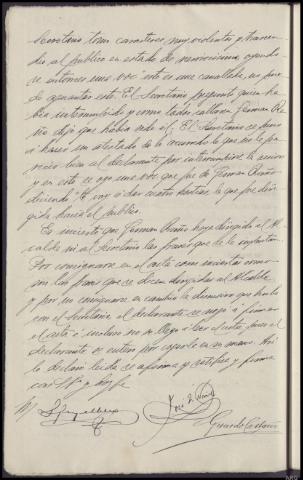 Secretario tomó caracteres muy violentos y trascen-
dió al público en estado de nerviosismo, oyendo-
se entonces una voz "esto es una canallada, no pue-
de aguantar esto". El Secretario preguntó quien ha-
bía interrumpido y como todos callaron German Ra-
dijo que había sido él. El Secretario se
hacer un atestado de lo ocurrido lo que no le pa-
reció bien al declarante por interrumpirse la sesion
y en esto se oyó una voz que fue de German
diciendo "te voy a dar cuatro hostias" la que fue diri-
gida hacia el público.
Es incierto que German haya dirigido al Al-
calde ni al Secretario las frases que de le imputan
Por consignarse en el acta como inciertas como
son las frases que se dicen dirigidas al Alcalde
y por no consignarse en cambio la discusion que hubo
con el Secretario el declarante se negó a firmar
el acta é incluso no se llegó á leer el acta pues el
declarante se enteró por cogerlo en su mano. Así
lo declaró leida se afirma y ratifica y firma
con SSª y doy fe
José
Gerardo